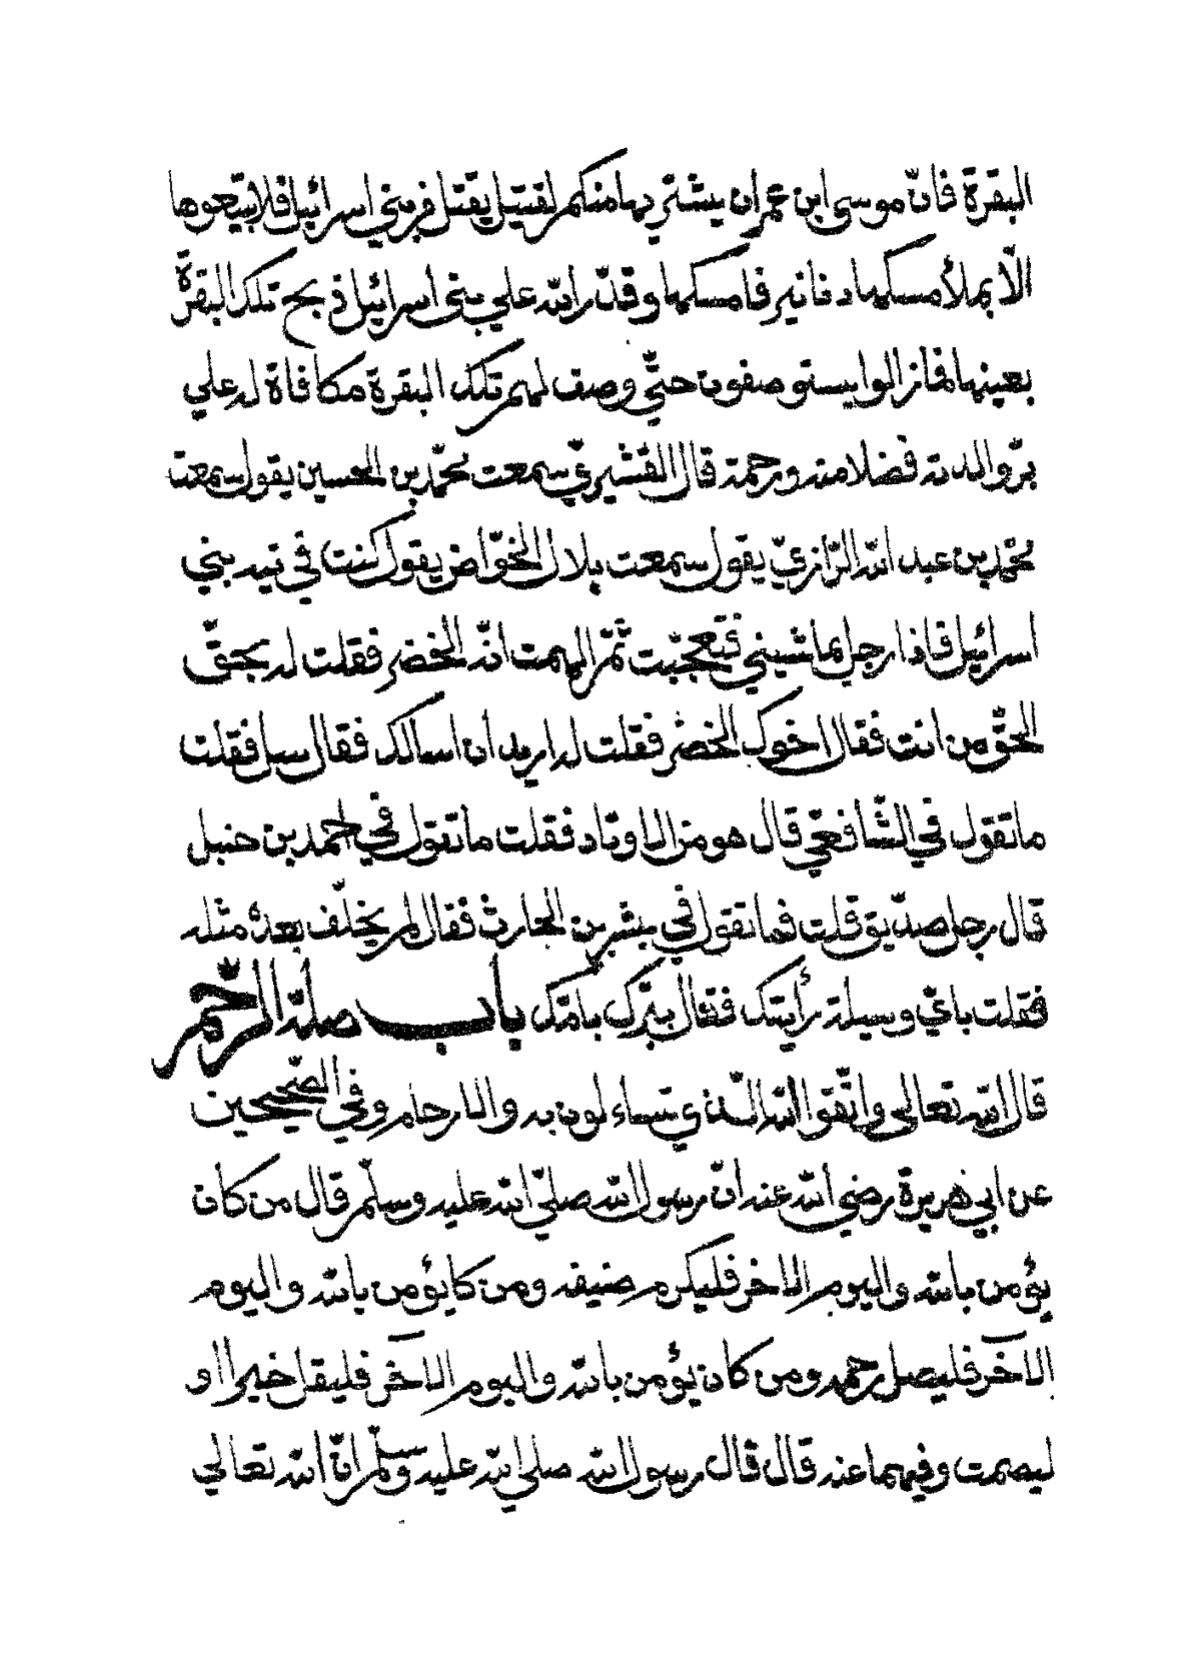 البقرة فانّ موسى ابن عمران يشتريها منكم لقتيل يقتل في بني اسرائيل فلا تبيعوها
الّا بملأ مسكها دنانير فامسكها وقدّر الله علي بني اسرائيل ذبح تلك البقرة
بعينها فمازالوا يستوصفون حتّي وصف لهم تلك البقرة مكافاة له علي
برّ والدته فضلا منه ورحمة قال القشيريّ سمعت محمّد بن الحسين يقول سمعت
محمّد بن عبد الله الرّازيّ يقول سمعت بلال الخوّاص يقول كنت في تيه بني
اسرائيل فاذا رجل يماشيني فتعجّبت ثمّ الهمت انّه الخضر فقلت له بحقّ
الحقّ من انت فقال اخوك الخضر فقلت له اريد أن اسالك فقال سل فقلت
ما تقول في الشّافعّي قال هو من الاوتاد فقلت ما تقول في احمد بن حنبل
قال رجل صدّيق قلت فما تقول في بشر بن الحارث فقال لم يخلّف بعده مثله
فقلت بايّ وسيلة رأيتك فقال ببّرك بامّك باب صلة الرّحم
قال الله تعالى واتّقوا الله الّذي تساءلون به والارحام وفي الصّحيحين
عن ابي هريرة رضي الله عنه انّ رسول الله صلّي الله عليه وسلّم قال من كان
يؤمن بالله واليوم الاخر فليكرم ضيفه ومن كا يؤمن بالله واليوم
الاخر فليصل رحمه ومن كان يؤمن بالله واليوم الآخر فليقل خيرا او
ليصمت وفيهما عنه قال قال رسول الله صلي الله عليه وسلّم انّ الله تعالي